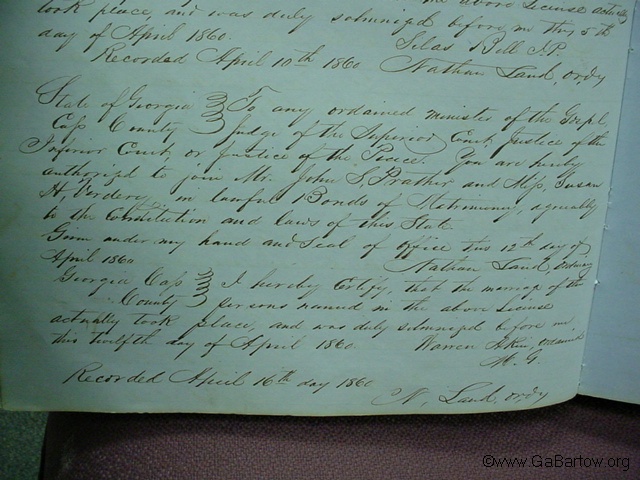 above License actually
took place, and was duly solemnized before me this 5th
day of April 1860. Silas Bell J.P.
Recorded April 10th 1860 Nathan Land, ordy
State of Georgia
Cass County
To any ordained minister of the Gospl
Judge of the Superior Court, Justice of the
Inferior Court or Justice of the Peace. You are hereby
authorized to join Mr. John S. Prather and Miss, Susan
in lawful Bonds of Matrimony, agreeably
to the Constitution and laws of this State
Given under my hand and Seal of office this 12th day of
April 1860 Nathan Land, ordinary
Georgia Cass
County
I hereby Certify, that the marriage of the
persons named in the above License
actually took place, and was duly solemnized before me,
this twelfth day of April 1860. Warren Akin, ordained
M. G.
Recorded April 16th day 1860
N, Land ordy
©www.GaBartow.org